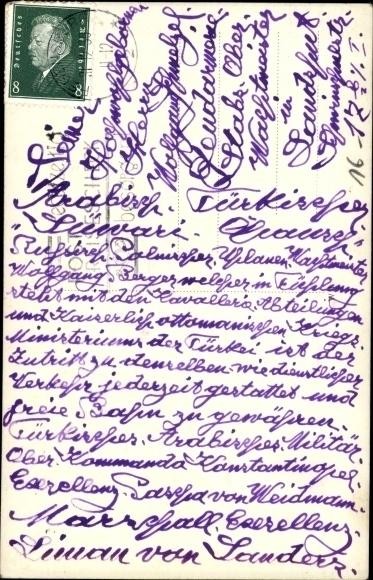 Deutsches Reich
8 8
Seiner
Hochwohlgeboren
Herrn
Wolfgang
Gendarmerie
Stabs Ober
Wachtmeister
in
Landshut
16-17 8½ I.
Arabisch Türkischer
Suwari Czausch
Russisch Polnischer Uhlanen Wachtmeister
Wolfgang welcher in Fühlung
steht mit den Kavallerie Abteilungen
und Kaiserlich ottomanischen Kriegs
Ministeriums der Türkei ist der
Zutritt zu denselben wie dienstlicher
Verkehr jederzeit gestattet und
freie Bahn zu gewähren.
Türkisches Arabisches Militär
Ober Kommando Konstantinopel.
Exzellenz Pascha von Weidmann
Marschall Exzellenz
Liman von Sanders.